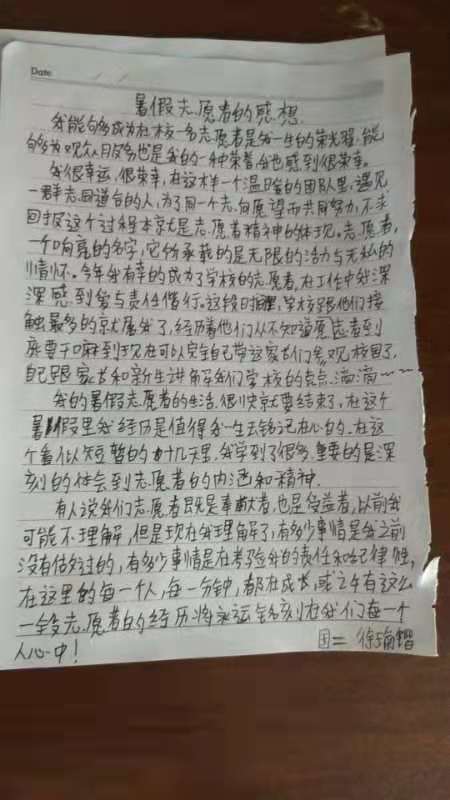 Date
暑假志愿者的感想
我能够成为在校一名志愿者是我一生的荣光,能
够为观众服务也是我的一种荣誉,我也感到很荣幸。
我很幸运,很荣幸,在这样一个温暖的团队里,遇见
一群志同道合的人,为了同一个志向愿望而共同努力,不求
回报这个过程本就是志愿者精神的体现,志愿者,
一个响亮的名字,它所承载的是无限的活力与无私的
情怀。今年我有幸的成为了学校的志愿者,在工作中我深
深感到爱与责任偕行。这段时间里,学校跟他们接
触最多的就属我了,经历着他们从不知道愿志者到
底要干嘛到现在可以完全自己带这家长们参观校园了,
自己跟家长和新生讲解我们学校的点点滴滴……
我的暑假志愿者的生活,很快就要结束了,在这个
暑假里我经历是值得我一生去铭记在心的,在这
个看似短暂的时几天里,我学到了很多,重要的是深
刻的体会到志愿者的内涵和精神.
有人说我们志愿者既是奉献者,也是受益者,以前我
可能不理解,但是现在我理解了,有多少事情是我之前
没有估多过的,有多少事情是在考验我的责任和纪律性,
在这里的每一个人,每一分钟,都在成长,或之年有这么
一段志愿者的经历将永远铭刻在我们每一个
人心中!
徐